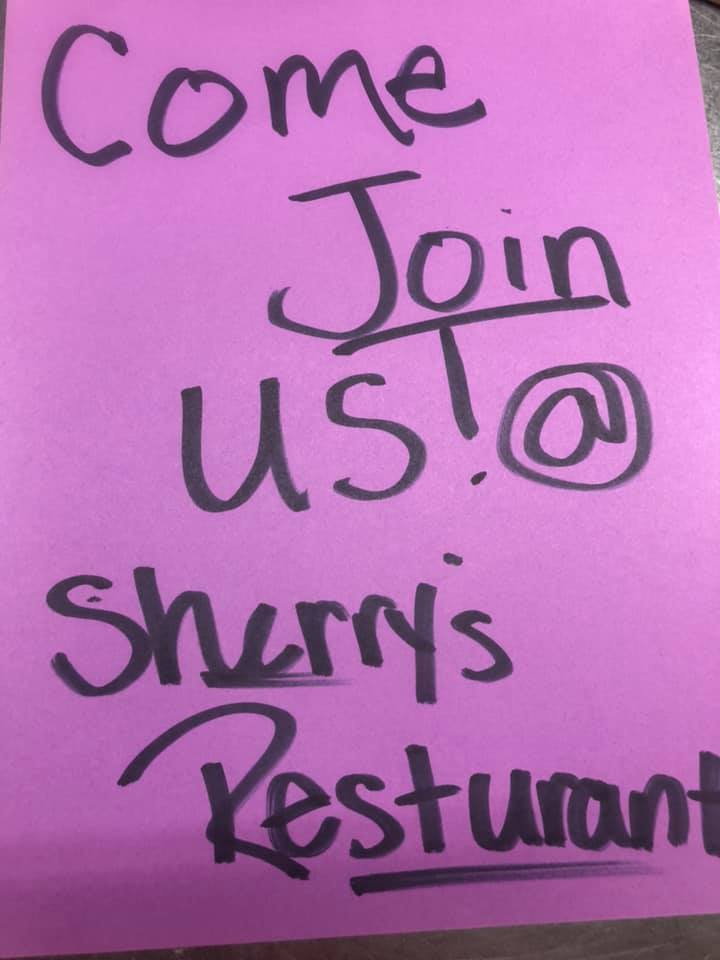 Come
Join
us! @
Sherry's
Resturant